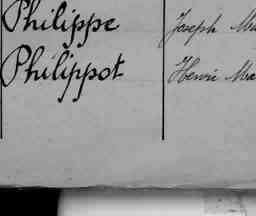 Philippe Joseph
Philippot Henri